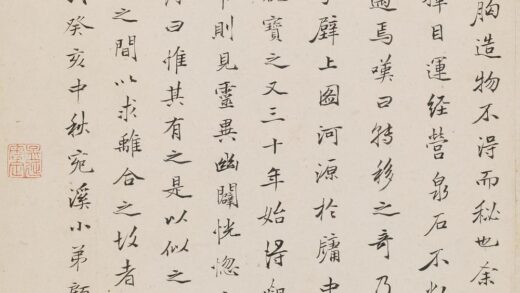 胸造物不得而秘也余
目運经營泉石不
焉嘆曰移之奇乃
壁上圖河源於牖中
寶之又三十年始得
則見靈異幽闢恍惚
曰惟其有之是以似之
之間以求離合之故者
癸亥中秋宛溪小弟顧